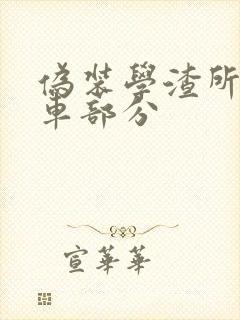 偽裝學渣所
車部分
宣華華